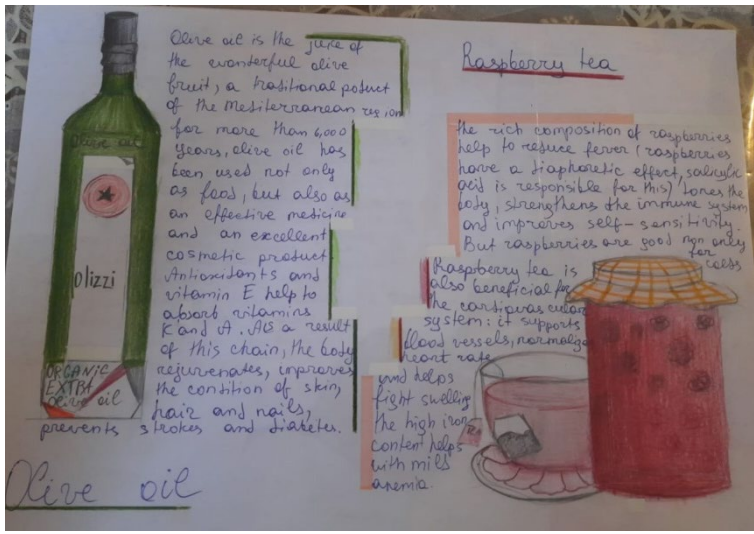 Olive oil is the juice of
the wonderful olive
fruit, a traditional poduct
of the mediterranean region
for more than 6,000
years, olive oil has
been used not only
as food, but also as
an effective medicine
and an excellent
cosmetic product.
Antioxitants and
vitamin E help to
absorb vitamins
K and A. As a result
of this chain, the body
rejuvenates, improves
the condition of skin,
hair and nails,
prevents strokes and diabetes.
Olive oil
Olive oil
Olizzi
ORGANIC
EXTRA
Olive oil
Raspberry tea
the rich composition of raspberries
help to reduce fever (raspberries
have a diaphoretic effect, salicylic
acid is responsible for this) tones the
body, strengthens the immune system
and improves self-sensitivity.
But raspberries are good non only
for
colds
Raspberry tea is
also beneficial for
the cardiovascular
system: it supports
blood vessels, normalize
heart rate
and helps
fight swelling
the high iron
content helps
with mild
anemia.